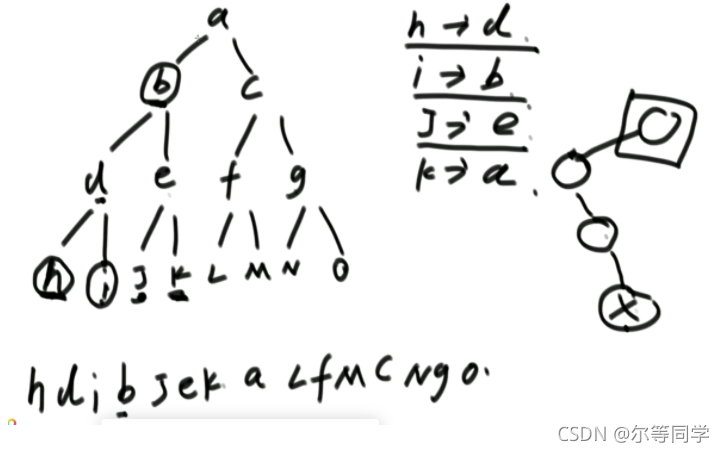 a
b c
d e f g
h i J K L M N O
h → d
i → b
J → e
K → a
X
h d i b J e K a L f M C N g O
CSDN @尔等同学